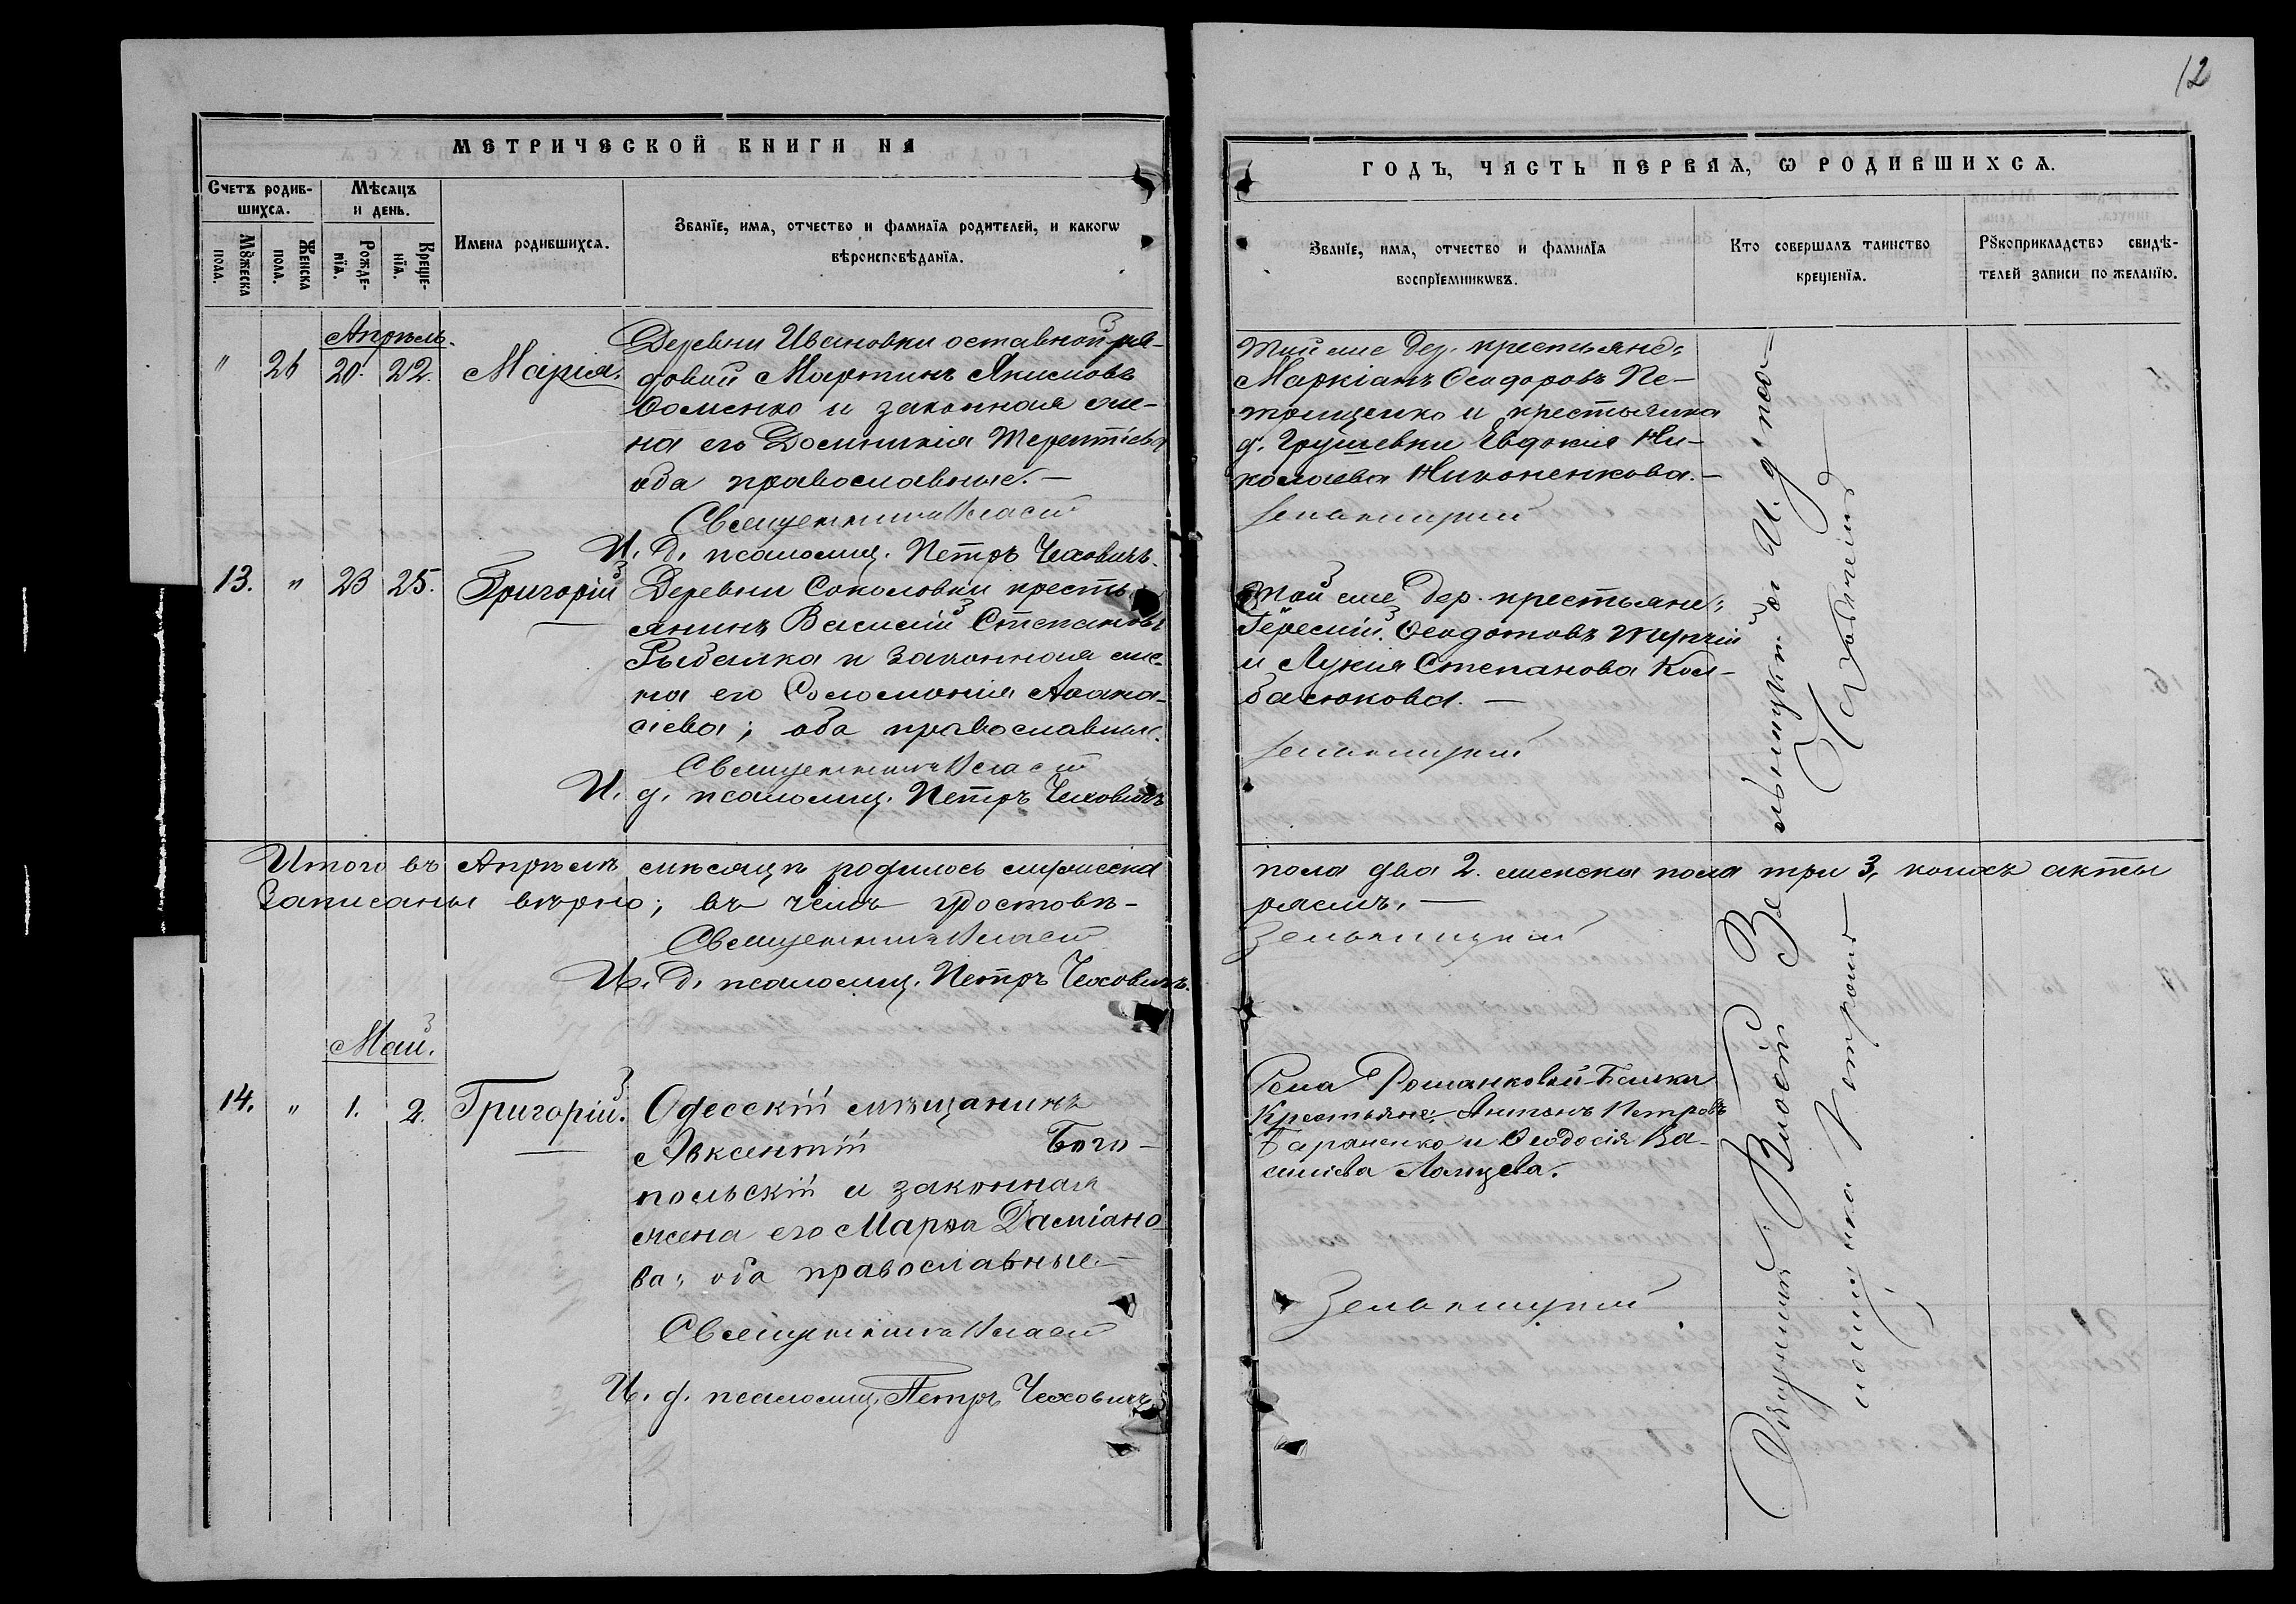 12
МЕТРИЧЕСКОЙ КНИГИ НА
ГОДЪ, ЧАСТЬ ПЕРВАЯ, Ѡ РОДИВШИХСѦ.
Счетъ родив-
шихсѧ.
Мѣсѧцъ
и день.
Мꙋжеска
пола.
Женска
пола.
Рожде-
нїѧ.
Креще-
нїѧ.
Имена родившихсѧ.
Званїе, имѧ, отчество и фамилїѧ родителей, и какогѡ
вѣроисповѣданїѧ.
Званїе, имѧ, отчество и фамилїѧ
воспрїемникѡвъ.
Кто совершалъ таинство
крещенїѧ.
Рꙋкоприкладство свидѣ-
телей записи по желанїю.
Апрѣль.
" 26 20. 22. Марія.
Деревни Ивановки оставной ря-
довой Мартинъ Якимовъ
и законная же-
на его Домникія Терентіева
оба православные. —
Священникъ Власій
И. д. псаломщ. Петръ Чеховичъ.
Той же дер. крестьяне:
Маркіанъ Ѳеодоровъ Пе-
трищенко и крестьянка
д. Грушевки Евдокія Ни-
колаева Никоненкова. —
Зельницкій
13. " 23 25. Григорій
Деревни Соколовки кресть-
янинъ Василій Степановъ
Рыбалка и законная же-
на его Соломонія Аѳана-
сіева; оба православные.
Священникъ Власій
И. д. псаломщ. Петръ Чеховичъ
Той же дер. крестьяне:
Ѳеодотовъ
и Лукія Степанова Кол-
басюкова. —
Зельницкій
Итого въ Апрѣлѣ мѣсяцѣ родилось мужеска
пола два 2. женска пола три 3, коихъ акты
Записаны вѣрно; въ чемъ удостовѣ-
ряемъ. —
Священникъ Власій
Зельницкій
И. д. псаломщ. Петръ Чеховичъ.
Май.
14. " 1. 2. Григорій.
Одесскій мѣщанинъ
Авксентій Бого-
польскій и законная
жена его Марѳа Даміано-
ва; оба православные. —
Священникъ Власій
И. д. псаломщ. Петръ Чеховичъ
Села Романковой-Балки
Крестьяне: Антонъ Петровъ
Бараненко и Ѳеодосія Ва-
силіева
Зельницкій
Священникъ Власій Зельницкій и И. д. пса-
ломщика Петромъ Чеховичемъ